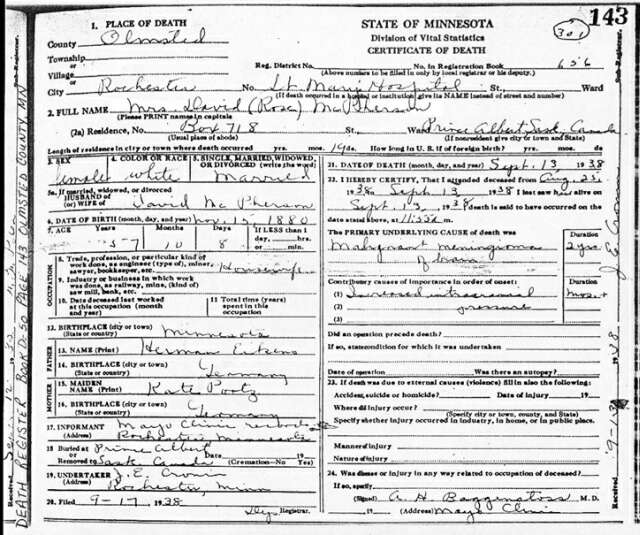 143
301
1. PLACE OF DEATH
STATE OF MINNESOTA
County Olmsted
Division of Vital Statistics
CERTIFICATE OF DEATH
Township
or
Village
Reg. District No. No. in Registration Book 656
or
(Above numbers to be filled in only by local registrar or his deputy.)
City Rochester No. St. Mary Hospital St. Ward
(If death occurred in a hospital or institution, give its NAME instead of street and number)
2. FULL NAME Mrs. David (Rose) McPherson
(Please PRINT names in capitals
(2a) Residence, No. Box 718 St. Ward Prince Albert Sask. Canada
(Usual place of abode) (If nonresident give city or town and State)
Length of residence in city or town where death occurred yrs. mos. 19 ds. How long in U. S. if of foreign birth? yrs. mos. ds.
3. SEX
4. COLOR OR RACE
5. SINGLE, MARRIED, WIDOWED, OR DIVORCED (write the word)
female white Married
5a. If married, widowed, or divorced
HUSBAND of
(or) WIFE of David McPherson
6. DATE OF BIRTH (month, day, and year) Nov. 15, 1880
7. AGE Years Months Days If LESS than
1 day, hrs.
or min.
57 10 8
OCCUPATION
8. Trade, profession, or particular kind of work done, as engineer (type of), miner, sawyer, bookkeeper, etc. Housewife
9. Industry or business in which work was done, as railway, mine, (kind of) saw mill, bank, etc.
10. Date deceased last worked at this occupation (month and year)
11 Total time (years) spent in this occupation
12. BIRTHPLACE (city or town)
(State or country) Minnesota
FATHER
13. NAME (Print) Herman
14. BIRTHPLACE (city or town)
(State or country) Germany
MOTHER
15. MAIDEN NAME (Print) Kate
16. BIRTHPLACE (city or town)
(State or country) Germany
17. INFORMANT Mayo Clinic records
(Address) Rochester Minnesota
18 Buried at Prince Albert Date 19
Removed to Sask Canada (Cremation—No Yes)
19. UNDERTAKER J. E. Cronin
(Address) Rochester, Minn
20. Filed 9-17, 1938
Registrar.
21. DATE OF DEATH (month, day, and year) Sept. 13, 1938
22. I HEREBY CERTIFY, That I attended deceased from Aug. 25,
1938, Sept. 13, 1938 I last saw h alive on
Sept. 13, 1938 death is said to have occurred on the
date stated above, at
The PRIMARY UNDERLYING CAUSE of death was: Duration
Malignant meningioma 2 yrs.
of brain
Contributory causes of importance in order of onset: Duration
(1) Increased intracranial mos. +
(2) pressure
(3)
Did an operation precede death?
If so, state condition for which it was undertaken.
Date of operation Was there an autopsy?
23. If death was due to external causes (violence) fill in also the following:
Accident, suicide or homicide? Date of injury 19
Where did injury occur?
(Specify city or town, county, and State)
Specify whether injury occurred in industry, in home, or in public place.
Manner of injury
Nature of injury
24. Was disease or injury in any way related to occupation of deceased?
If so, specify
(Signed) A. H. Baggenstoss M. D.
19 (Address) Mayo Clinic
DEATH REGISTER BOOK D-50 PAGE 143 OLMSTED COUNTY, MN
Received
Sub-Registrar.
Received 9-13 1938
Sub-Registrar.